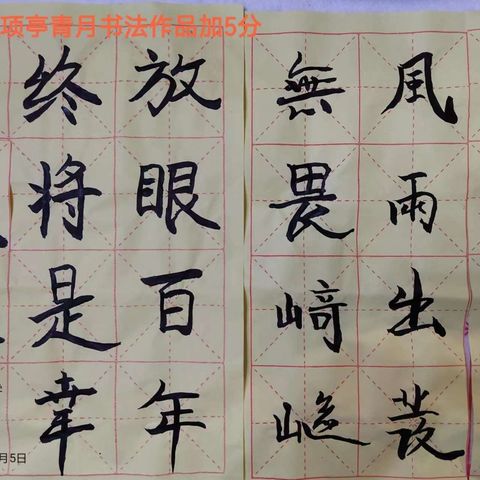 项亭青月书法作品加5分
風雨出發
無畏崎嶇
放眼百年
终将是幸
月5日